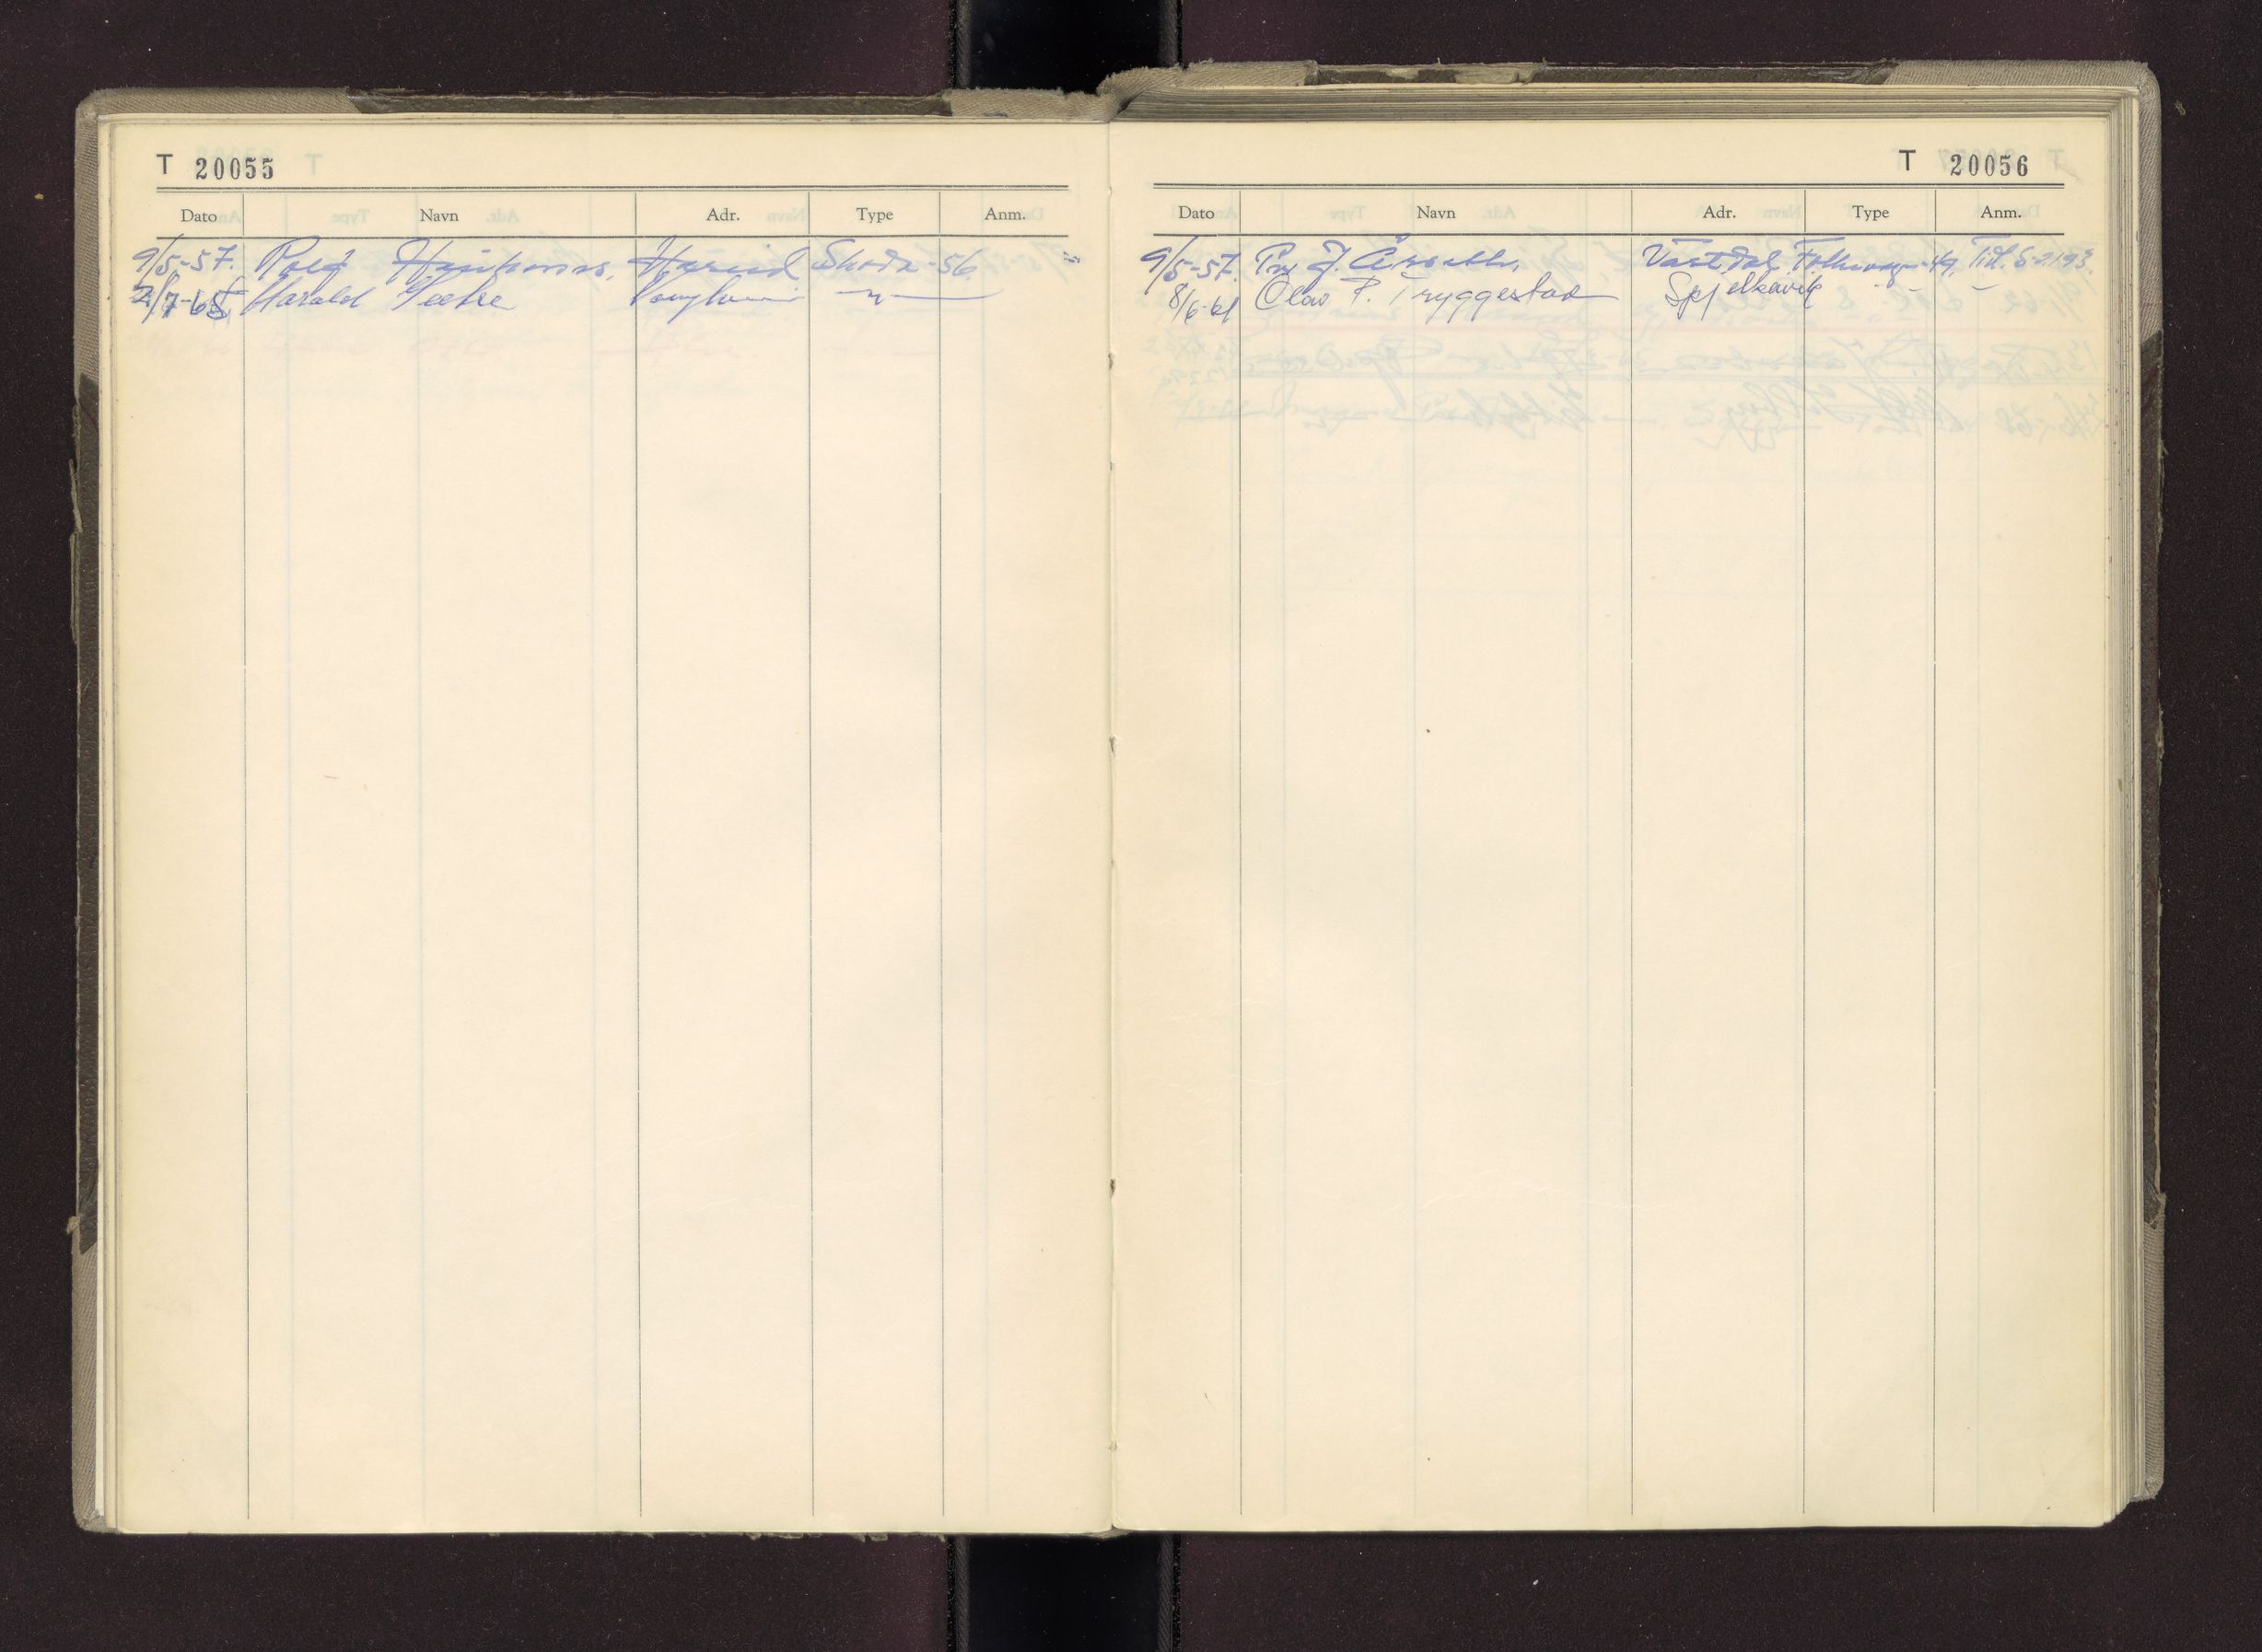 T 20055
Dato Navn Adr. Type Anm.
9/5-57. Rolf Hareid Skoda-56.
2/7-65 Harald -"-
T 20056
Dato Navn Adr. Type Anm.
9/5-57. Per J. Vartdal Folkevogn-49. Tidl. S-2193.
8/6-61 Olav P. Tryggestad Spjelkavik